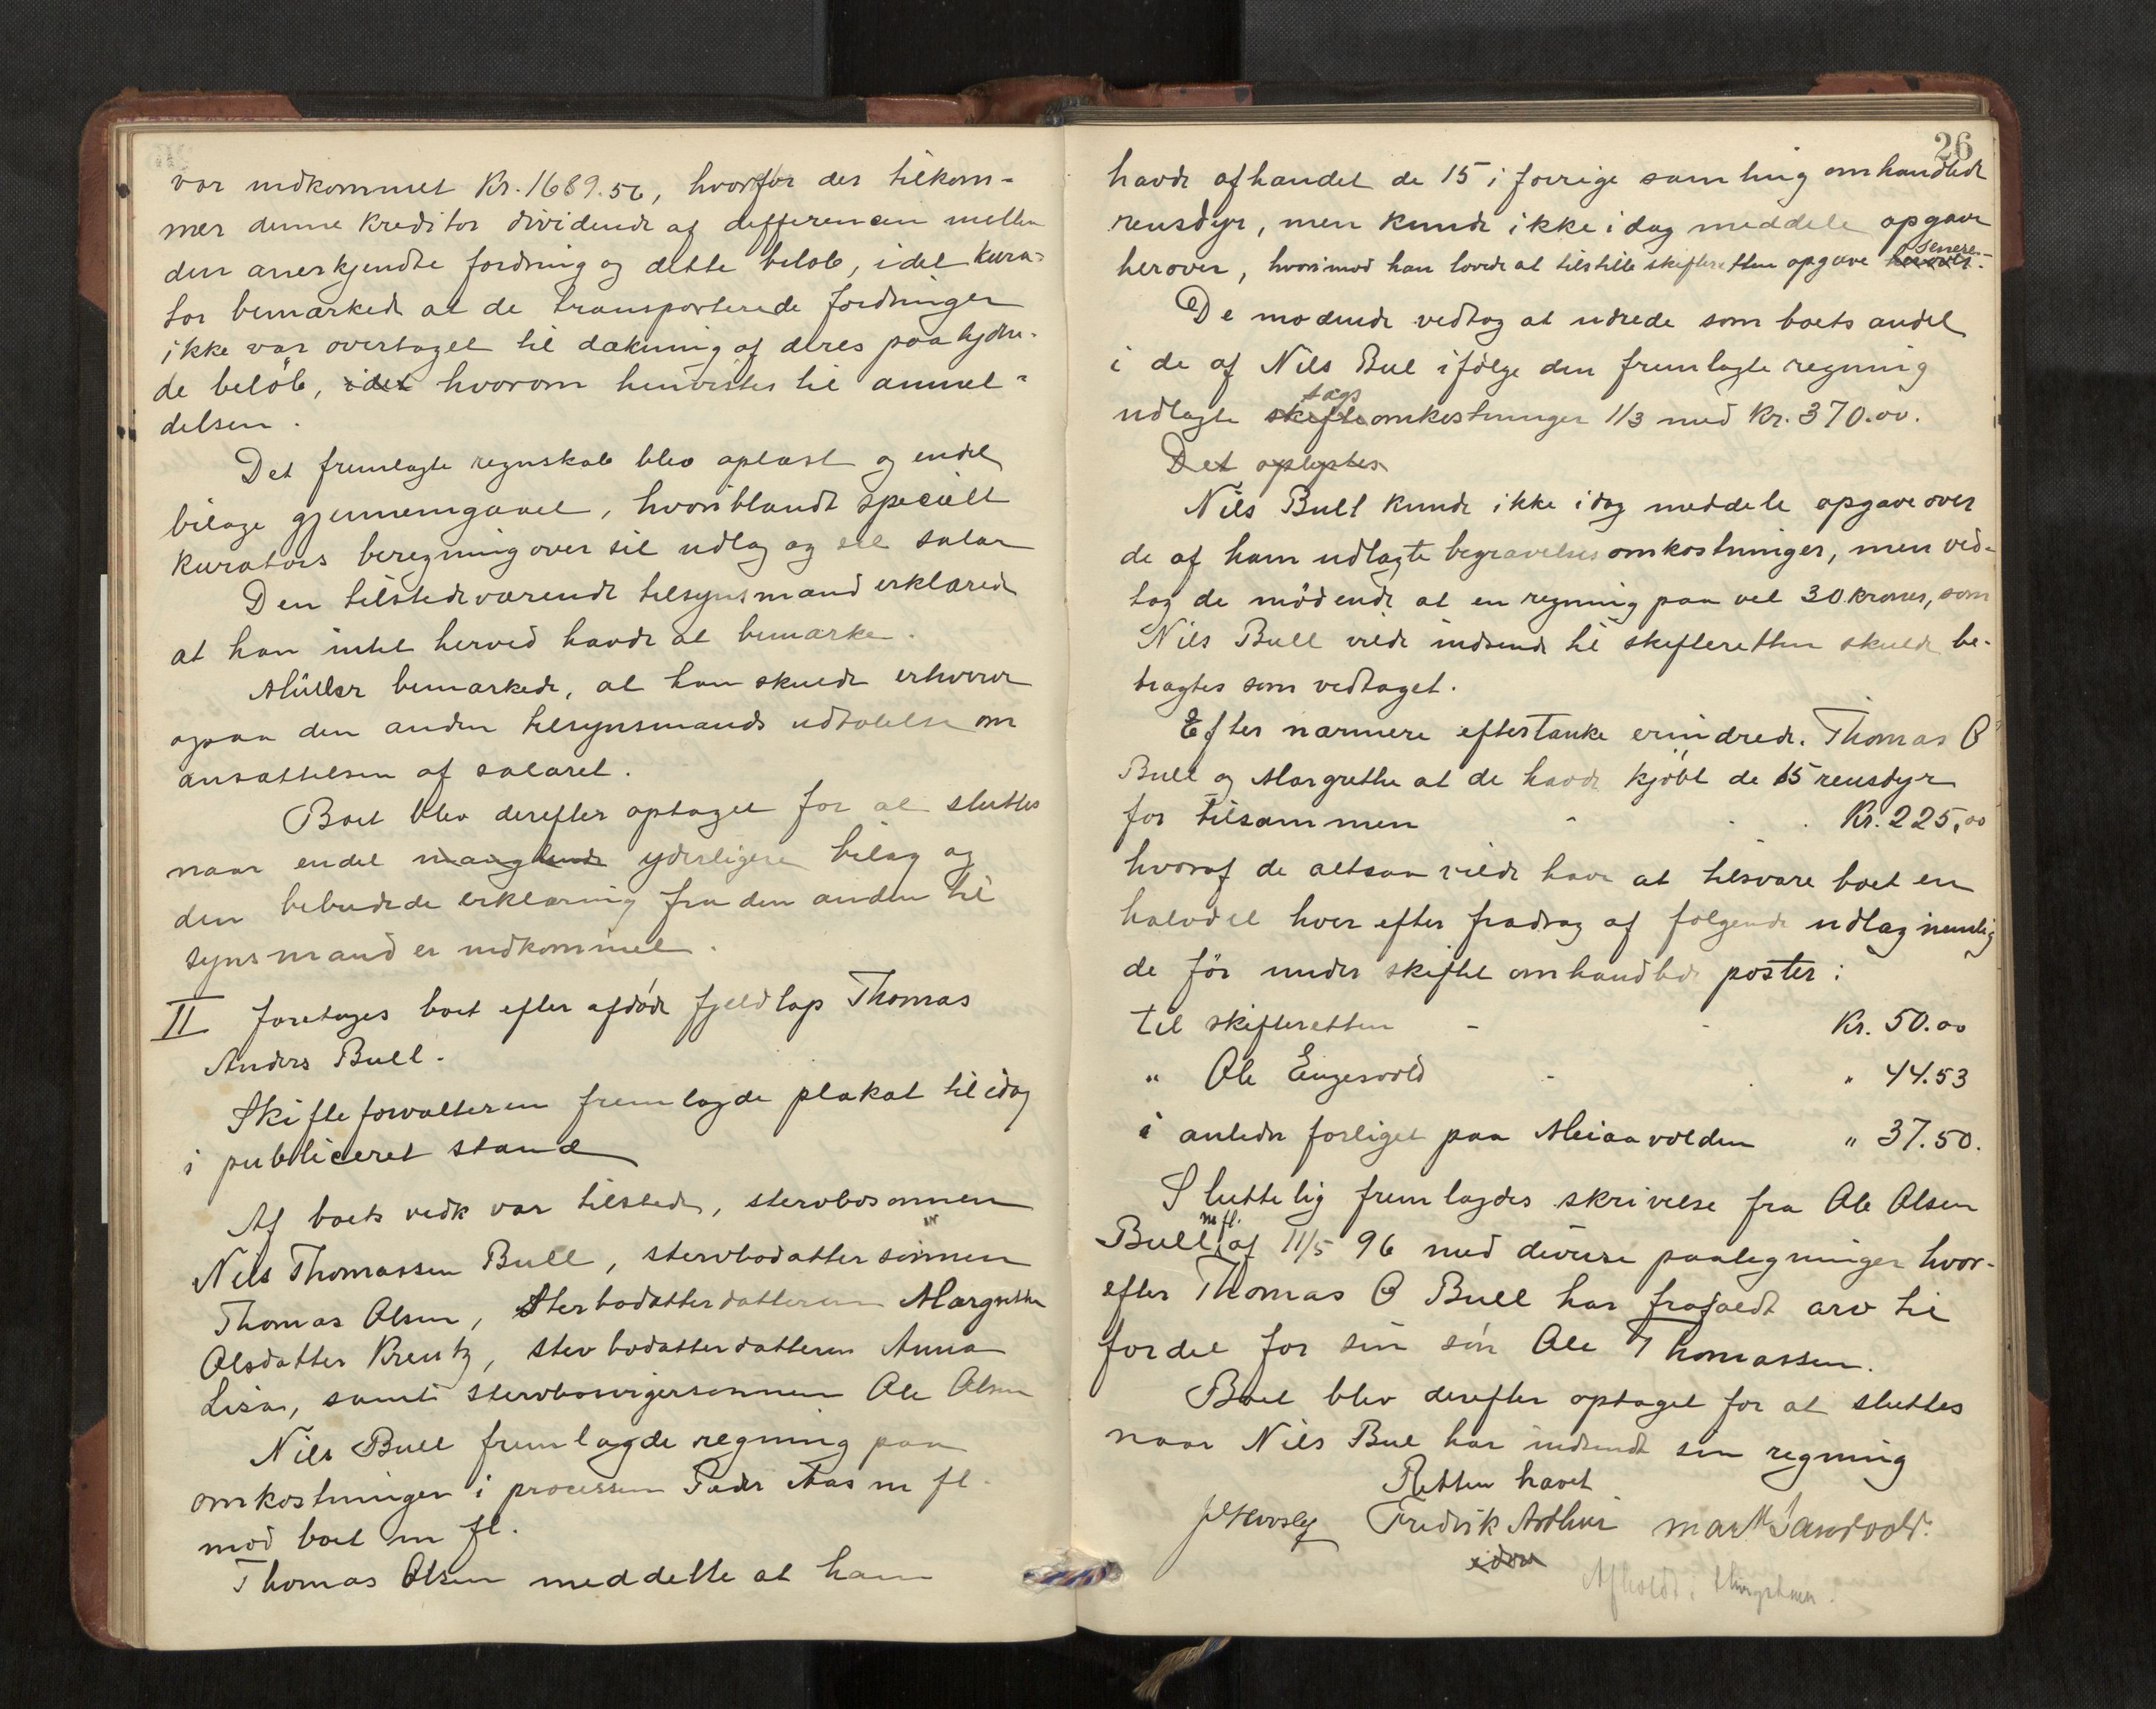 var indkommet Kr. 1689.56, hvorfor der tilkom-
mer denne kreditor dividende af differencen mellem
den anerkjendte fordring og dette beløb, idet kura-
tor bemærkede at de transporterede fordringer
ikke var overtaget til dækning af deres paalyden-
de beløb, idet hvorom henvistes til anmel-
delsen.
Det fremlagte regnskab blev oplæst og endel
bilage gjennemgaaet, hvoriblandt specielt
kurators beregning over sit udlæg og sit salær
Den tilstedeværende tilsynsmand erklærede
at han intet herved havde at bemærke.
Müller bemærkede, at han skulde erhverve
ogsaa den anden tilsynsmands udtalelse om
ansættelsen af salæret.
Boet blev derefter optaget for at sluttes
naar endel manglende yderligere bilag og
den bebudede erklæring fra den anden til
synsmand er indkommet.
II foretoges boet efter afdøde fjeldlap Thomas
Anders Bull.
Skifteforvalteren fremlagde plakat til idag
i publiceret stand
Af boets vedk var tilstede, stervbosønnen
Nils Thomassen Bull, stervbodattersønnen
Thomas Olsen, Sterbodatterdatteren Margrethe
Olsdatter Kreutz, stervbodatterdatteren Anna
Lisa, samt stervbosvigersønnen Ole Olsen
Nils Bull fremlagde regning paa
omkostninger i processen Peder Aas m fl.
mod boet m fl.
Thomas Olsen meddelte at ham
26
havde afhændet de 15 i forrige samling omhandlede
rensdyr, men kunde ikke idag meddele opgave
herover, hvorimod han lovede at tilstille skifteretten opgave herover senere.
De mødende vedtog at udrede som boets andel
i de af Nils Bul ifølge den fremlagte regning
udlagte skifte sags omkostninger 1/3 med Kr. 370.00.
Det oplystes
Nils Bull kunde ikke idag meddele opgave over
de af ham udlagte begravelsesomkostninger, men ved-
tog de mødende at en regning paa vel 30 kroner, som
Nils Bull vilde indsende til skifteretten skulde be-
tragtes som vedtaget.
Efter nærmere eftertanke erindrede Thomas O
Bull og Margrethe at de havde kjøbt de 15 rensdyr
for tilsammen Kr. 225,00
hvoraf de altsaa vilde have at tilsvare boet en
halvdel hver efter fradrag af følgende udlæg nemlig
de før under skiftet omhandlede poster:
til skifteretten Kr. 50.00
" Ole Engesvold " 44.53
i anledn forliget paa Meiaavolden " 37.50.
Sluttelig fremlagdes skrivelse fra Ole Olsen
Bull m fl. af 11/5 96 med diverse paategninger hvor-
efter Thomas O Bull har frafaldt arv til
fordel for sin søn Ole Thomassen.
Boet blev derefter optaget for at sluttes
naar Nils Bul har indsendt sin regning
Retten hævet
Fredrik Arthur Mart Sandvold.
Afholdt i